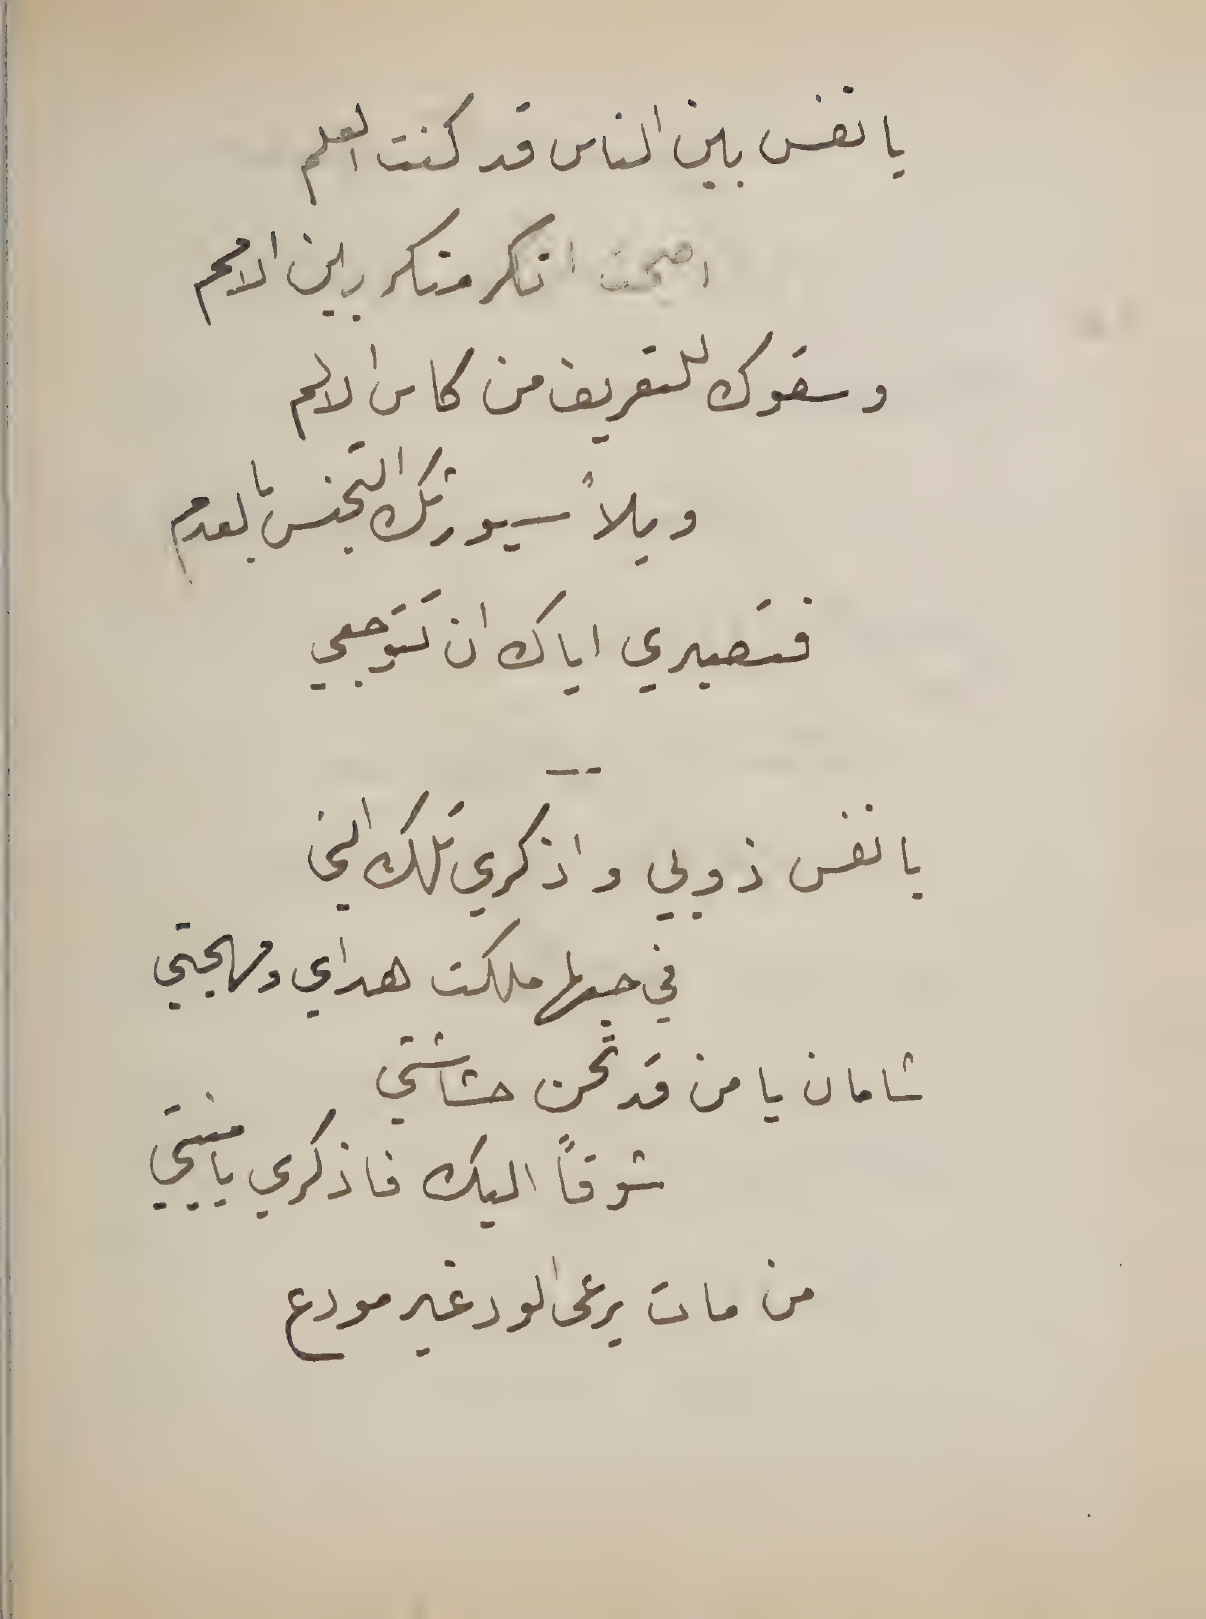 يا نفس بين الناس قد كنت العلم
اصبحت انكر منكر بين الامم
وسقوك للتفريف من كاس الالم
ويلاً سيورثك التجنس بالعدم
فتصيري اياك ان تتوجعي
يا نفس ذوبي واذكري تلك التي
في حبها ملكت هداي ومهجتي
شامان يا من قد ثحن حشاشتي
شوقاً اليك فاذكري يا منيتي
من مات يرعى الود غير مودع